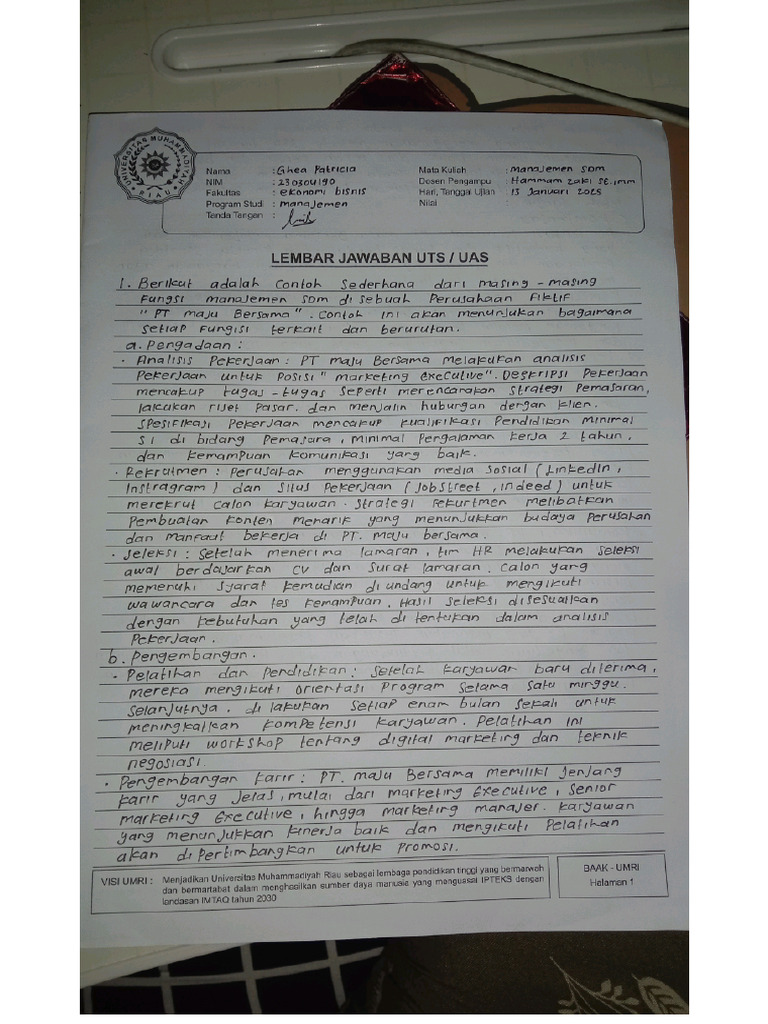 UNIVERSITAS MUHAMMADIYAH RIAU
Nama : Ghea Patricia
NIM : 230304190
Fakultas : ekonomi bisnis
Program Studi : manajemen
Tanda Tangan :
Mata Kuliah : manajemen SDM
Dosen Pengampu : Hammam zaki SE.,mm
Hari, Tanggal Ujian : 13 Januari 2025
Nilai
LEMBAR JAWABAN UTS / UAS
1. Berikut adalah contoh sederhana dari masing-masing
fungsi manajemen SDM di sebuah Perusahaan Fiktif
"PT maju Bersama". Contoh ini akan menunjukan bagaimana
setiap fungisi terkait dan berurutan.
a. Pengadaan :
· Analisis Pekerjaan : PT maju Bersama melakukan analisis
Pekerjaan untuk Posisi "marketing executive". Deskripsi Pekerjaan
mencakup tugas-tugas seperti merencanakan strategi Pemasaran,
lakukan riset pasar. dan menjalin hubungan dengan klien.
spesifikasi Pekerjaan mencakup kualifikasi Pendidikan minimal
S1 di bidang Pemasara, minimal Pengalaman kerja 2 tahun,
dan kemampuan komunikasi yang baik.
· Rekrutmen : perusahan menggunakan media sosial (LinkedIn,
Instragram) dan situs Pekerjaan (Jobstreet, indeed) untuk
merekrut calon karyawan. strategi rekurtmen melibatkan
Pembuatan konten menarik yang menunjukkan budaya perusahan
dan manfaat bekerja di PT. maju bersama.
· Seleksi : setelah menerima lamaran, tim HR melakukan seleksi
awal berdasarkan CV dan surat lamaran. Calon yang
memenuhi syarat kemudian di undang untuk mengikuti
wawancara dan tes kemampuan. Hasil seleksi disesuaikan
dengan kebutuhan yang telah di tentukan dalam analisis
Pekerjaan.
b. Pengembangan.
· Pelatihan dan Pendidikan : setelah karyawan baru diterima,
mereka mengikuti orientasi Program selama satu minggu.
Selanjutnya. di lakukan setiap enam bulan sekali untuk
meningkatkan kompetensi karyawan. Pelatihan ini
meliputi workshop tentang digital marketing dan teknik
negosiasi.
· Pengembangan Karir : PT. maju Bersama memiliki jenjang
karir yang jelas, mulai dari marketing executive, senior
marketing executive, hingga marketing manajer. karyawan
yang menunjukkan kinerja baik dan mengikuti Pelatihan
akan dipertimbangkan untuk promosi.
VISI UMRI : Menjadikan Universitas Muhammadiyah Riau sebagai lembaga pendidikan tinggi yang bermarwah
dan bermartabat dalam menghasilkan sumber daya manusia yang menguasai IPTEKS dengan
landasan IMTAQ tahun 2030
BAAK - UMRI
Halaman 1